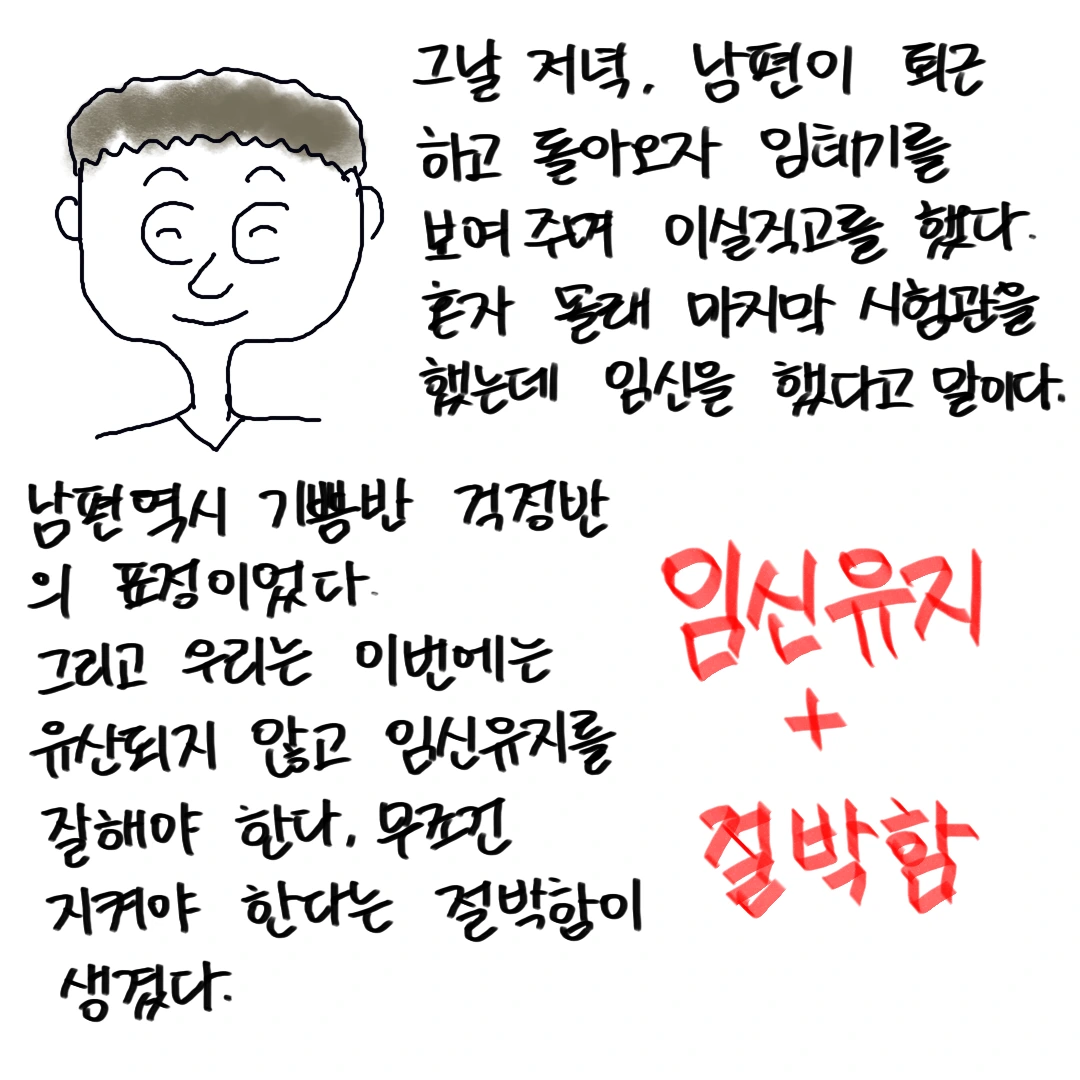 그날 저녁, 남편이 퇴근
하고 돌아오자 임테기를
보여주며 이실직고를 했다.
혼자 몰래 마지막 시험관을
했는데 임신을 했다고 말이다.
남편역시 기쁨반 걱정반
의 표정이었다.
그리고 우리는 이번에는
유산되지 않고 임신유지를
잘해야 한다, 무조건
지켜야 한다는 절박함이
생겼다.
임신유지
+
절박함